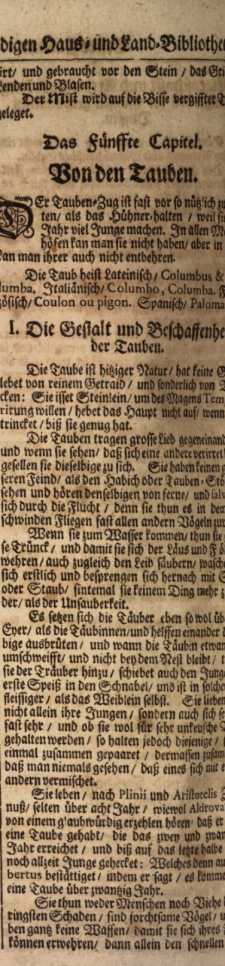 digen Haus- und Land-Bibliothec
ürt/ und gebraucht vor den Stein / das Gri
Lenden und Blasen.
Der Mist wird auf die Bisse vergiffter T
geleget.
Das Fünffte Capitel.
Von den Tauben.
DEr Tauben-Zug ist fast vor so nütz'ich zu
ten/ als das Hühner-halten / weil sie
Jahr viel Junge machen. In allen M
höfen kan man sie nicht haben/ aber in
kan man ihrer auch nicht entbehren.
Die Taub heist Lateinisch/ Columbus &
lumba. Italiänisch/ Colombo, Columba. F
zösisch/ Coulon ou pigon. Spanisch/ Paloma
I. Die Gestalt und Beschaffenhe
der Tauben.
Die Taube ist hitziger Natur/ hat keine G
lebet von reinem Getraid/ und sonderlich von
cken: Sie isset Steinlein/ um des Magens Tem
rirung willen/ hebet das Haupt nicht auf/ wenn
trincket/ biß sie genug hat.
Die Tauben tragen grosse Lieb gegeneinand
und wenn sie sehen/ daß sich eine andere verirret
gesellen sie dieselbige zu sich. Sie haben keinen g
seren Feind/ als den Habich oder Tauben-Stö
sehen und hören denselbigen von ferne/ und salv
sich durch die Flucht / denn sie thun es in dem
schwinden Fliegen fast allen andern Vögeln zuv
Wenn sie zum Wasser kommen/ thun sie
se Trünck/ und damit sie sich der Läus und Fö
wehren/ auch zugleich den Leib säubern/ wasche
sich erstlich und besprengen sich hernach mit S
oder Staub/ sintemal sie keinem Ding mehr z
der/ als der Unsauberkeit.
Es setzen sich die Täuber eben so wol üb
Eyer/ als die Täubinnen/ und helffen einander d
bige ausbrüten / und wann die Täubin etwan
umschweifft/ und nicht bey dem Nest bleibt / t
sie der Träuber hinzu / schiebet auch den Jung
erste Speiß in den Schnabel/ und ist in solche
fleissiger / als das Weiblein selbst. Sie lieben
nicht allein ihre Jungen / sondern auch sich se
fast sehr / und ob sie wol für sehr unkeusche V
gehalten werden / so halten jedoch diejenige / 
einmal zusammen gepaaret / dermassen zusam
daß man niemals gesehen/ daß eines sich mit e
andern vermischet.
Sie leben / nach Plinii und Aristotelis Z
nuß/ selten über acht Jahr / wiewol Aldrova
von einem g'aubwürdig erzehlen hören/ daß er
eine Taube gehabt/ die das zwey und zwan
Jahr erreichet / und biß auf das letzte halbe
noch allzeit Junge gehecket: Welches denn au
bertus bestättiget / indem er sagt / es komme
eine Taube über zwantzig Jahr.
Sie thun weder Menschen noch Viehe
ringsten Schaden/ sind forchtsame Vögel/ u
ben gantz keine Waffen/ damit sie sich ihres
können erwehren/ dann allein den schnellen